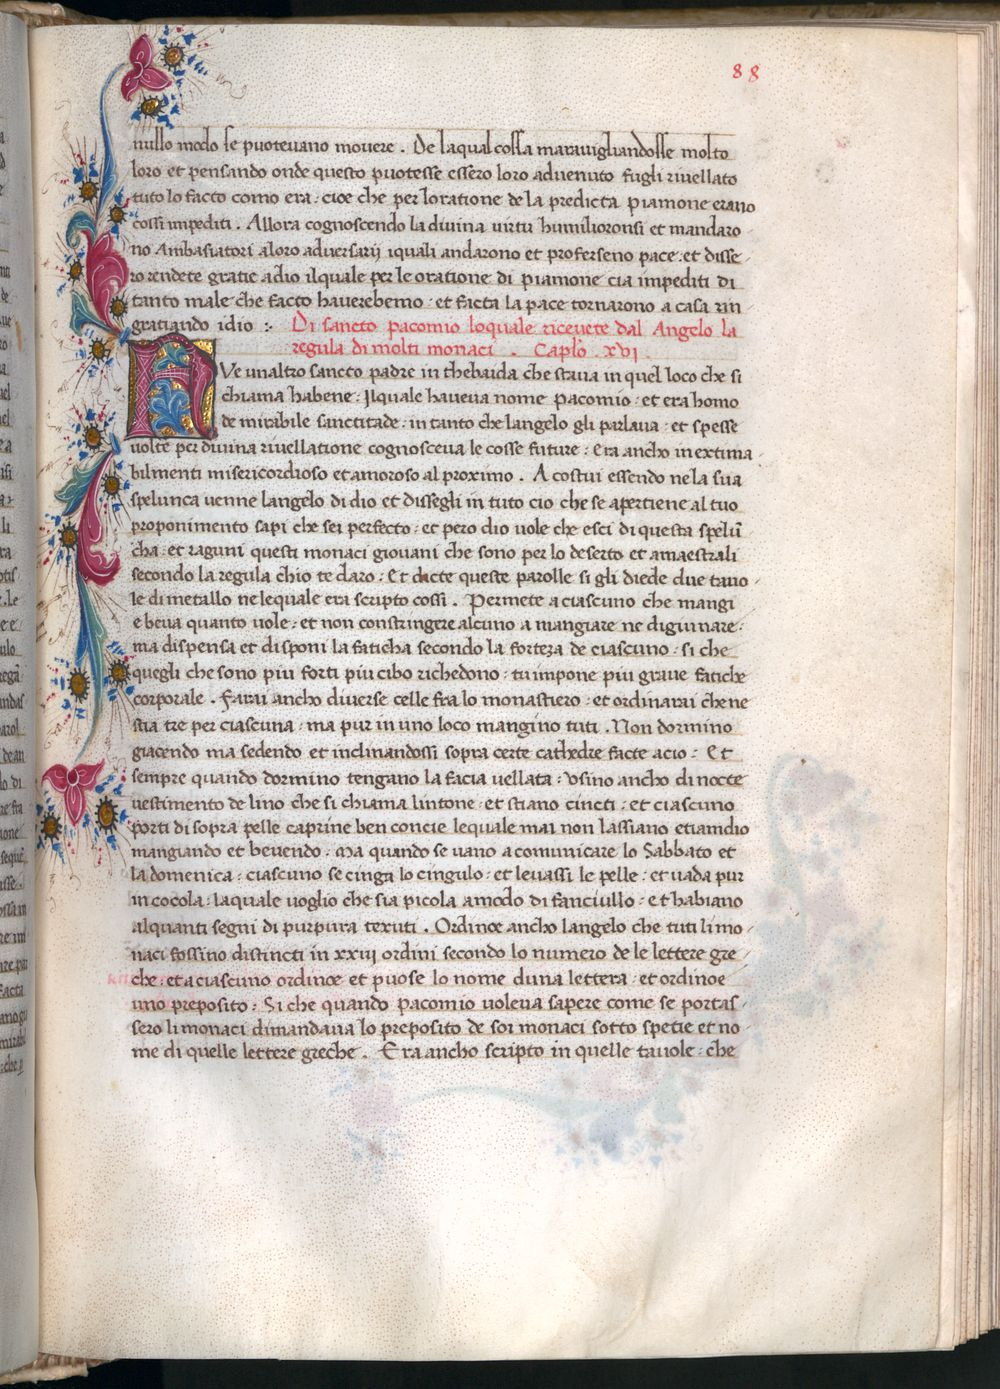 88
nullo modo se puotevano movere . De laqual cossa maravigliandosse molto
loro et pensando onde questo puotesse essero loro advenuto fugli rivellato
tuto lo facto como era : cioe che per loratione de la predicta piamone erano
cossi impediti . Allora cognoscendo la divina virtu humiliororonsi et mandaro
no Ambasiatori a loro adversarij iquali andarono et proferseno pace : et disse-
ro rendete gratie adio ilquale per le oratione di piamone cia impediti di
tanto male che facto haverebemo : et facta la pace tornarono a casa rin
gratiando idio :- Di sancto pacomio loquale ricevete dal Angelo la
regula di molti monaci . Caplo . xvi .
AVe unaltro sancto padre in thebaida che stava in quel loco che si
chiama habene : Ilquale haveva nome pacomio : et era homo
de mirabile sanctitade : in tanto che langelo gli parlava : et spesse
volte per divina rivellatione cognosceva le cosse future : Era ancho in extima-
bilmenti misericordioso et amoroso al proximo . A costui essendo ne la sua
spelunca venne langelo di dio et dissegli in tuto cio che se apertiene al tuo
proponimento sapi che sei perfecto : et pero dio vole che esci di questa spelū
cha : et raguni questi monaci giovani che sono per lo deserto et amaestrali
secondo la regula chio te daro : Et dicte queste parolle si gli diede due tavo-
le di metallo ne lequale era scripto cossi . Permete a ciascuno che mangi
e beva quanto vole : et non constringere alcuno a mangiare ne digiunare :
ma dispensa et disponi la faticha secondo la forteza de ciascuno : si che
quegli che sono piu forti piu cibo richedono : tu impone piu grave fatiche
corporale . Farai ancho diverse celle fra lo monastiero : et ordinarai che ne
stia tre per ciascuna : ma pur in uno loco mangino tuti . Non dormino
giacendo ma sedendo et inclinandossi sopra certe cathedre facte acio : Et
sempre quando dormino tengano la facia vellata : Usino ancho di nocte
vestimento de lino che si chiama lintone : et stiano cincti : et ciascuno
porti di sopra pelle caprine ben concie lequale mai non lassiano etiamdio
mangiando et bevendo : Ma quando se vano a comunicare lo Sabbato et
la domenica : ciascuno se cinga lo cingulo : et levassi le pelle : et vada pur
in cocola : laquale voglio che sia picola a modo di fanciullo : et habiano
alquanti segni di purpura texuti . Ordinoe ancho langelo che tuti li mo-
naci fossino distincti in xxiiii ordini secondo lo numero de le lettere gre-
che : et a ciascuno ordinoe et puose lo nome duna lettera : et ordinoe
uno preposito : Si che quando pacomio voleva sapere come se portas-
sero li monaci dimandava lo preposito de soi monaci sotto spetie et no-
me di quelle lettere greche . Era ancho scripto in quelle tavole : che